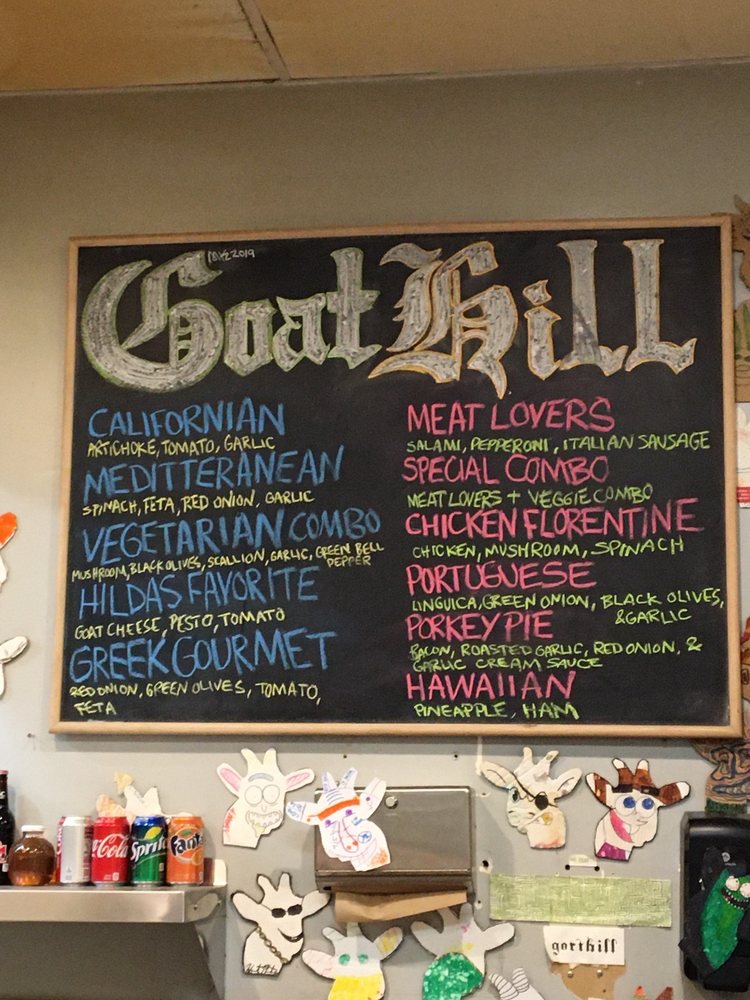 Goat Hill
CALIFORNIAN
ARTICHOKE, TOMATO, GARLIC
MEDITTERANEAN
SPINACH, FETA, RED ONION, GARLIC
VEGETARIAN COMBO
MUSHROOM, BLACK OLIVES, SCALLION, GARLIC, GREEN BELL
PEPPER
HILDAS FAVORITE
GOAT CHEESE, PESTO, TOMATO
GREEK GOURMET
RED ONION, GREEN OLIVES, TOMATO,
FETA
MEAT LOVERS
SALAMI, PEPPERONI, ITALIAN SAUSAGE
SPECIAL COMBO
MEAT LOVERS + VEGGIE COMBO
CHICKEN FLORENTINE
CHICKEN, MUSHROOM, SPINACH
PORTUGUESE
LINGUICA, GREEN ONION, BLACK OLIVES,
& GARLIC
PORKEY PIE
BACON, ROASTED GARLIC, RED ONION, &
GARLIC CREAM SAUCE
HAWAIIAN
PINEAPPLE, HAM
Coca-Cola
Sprite
Fanta
goathill